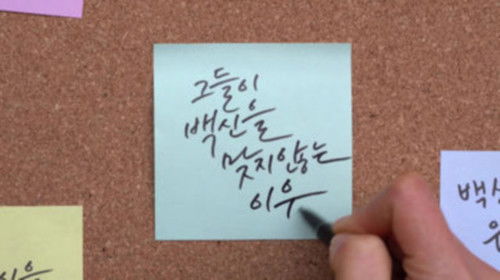 그들이
백신을
맞지않는
이우
백